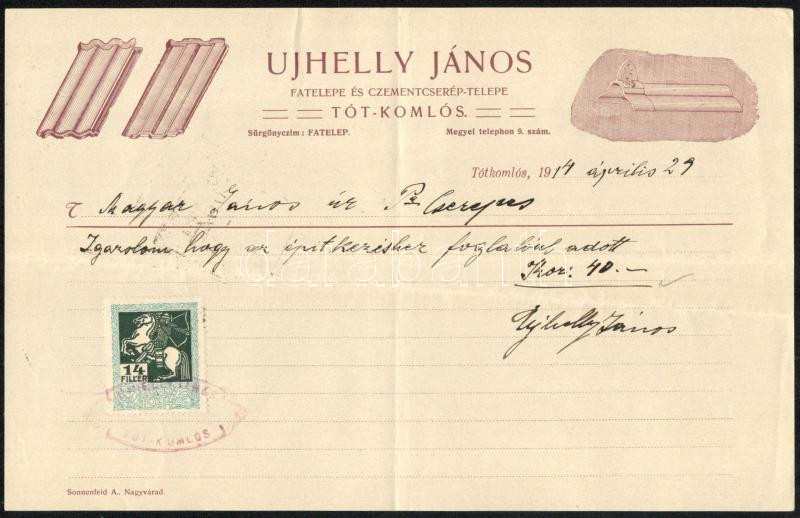 UJHELLY JÁNOS
FATELEPE ÉS CZEMENTCSERÉP-TELEPE
TÓT-KOMLÓS.
Sürgönyczim: FATELEP. Megyei telephon 9. szám.
Tóthomlós, 1914 április 29
T Magyar János úr Cserepes
Igazolom hogy az épitkezéshez foglalóul adott
Kor: 40.—
Ujhelly János
14
FILLÉR
UJHELLY JÁNOS
TÓT-KOMLÓS
darabanth
Sonnenfeld A., Nagyvárad.